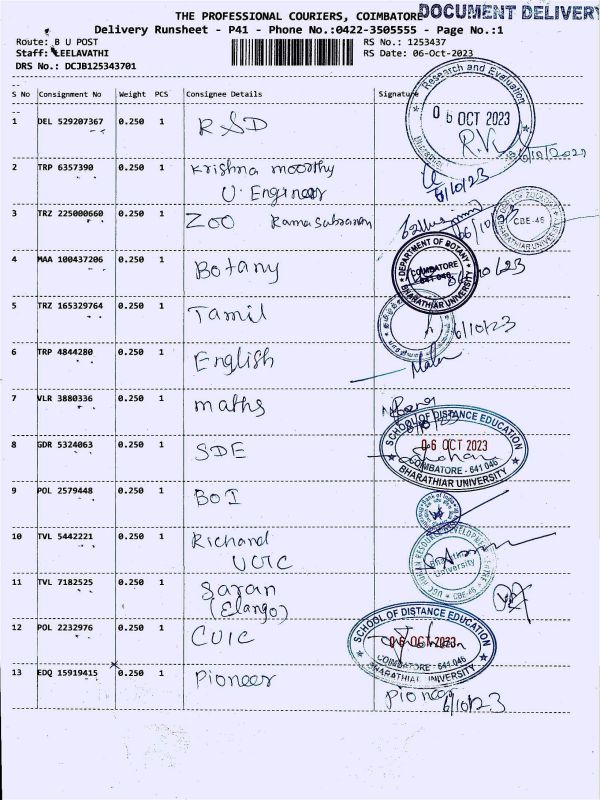 THE PROFESSIONAL COURIERS, COIMBATORE
DOCUMENT DELIVERY
Delivery Runsheet - P41 - Phone No.:0422-3505555 - Page No.:1
Route: B U POST
RS No.: 1253437
Staff: LEELAVATHI
RS Date: 06-Oct-2023
DRS No.: DCJB125343701
S No Consignment No Weight PCS Consignee Details Signature
1 DEL 529207367 0.250 1 RSD
Research and Evaluation
06 OCT 2023
R.K
2 TRP 6357390 0.250 1 Krishna moorthy
U. Engineer
6/10/23
3 TRZ 225000660 0.250 1 ZOO Ramasubraman
06/10/23
CBE-46
BHARATHIAR UNIVERSITY
4 MAA 100437206 0.250 1 Botany
DEPARTMENT OF BOTANY
COIMBATORE
641 046
BHARATHIAR UNIVERSITY
06/10/23
5 TRZ 165329764 0.250 1 Tamil
6/10/23
6 TRP 4844280 0.250 1 English
7 VLR 3880336 0.250 1 maths
8 GDR 5324063 0.250 1 SDE
SCHOOL OF DISTANCE EDUCATION
06 OCT 2023
COIMBATORE - 641 046
BHARATHIAR UNIVERSITY
9 POL 2579448 0.250 1 BOI
Bank of India
10 TVL 5442221 0.250 1 Richand
UCIC
UGC HUMAN RESOURCE DEVELOPMENT CENTRE
University
CBE-46
11 TVL 7182525 0.250 1 Saran
(Elango)
12 POL 2232976 0.250 1 CUIC
SCHOOL OF DISTANCE EDUCATION
06 OCT 2023
COIMBATORE - 641 046
BHARATHIAR UNIVERSITY
13 EDQ 15919415 0.250 1 Pioneer
Pioneer
6/10/23